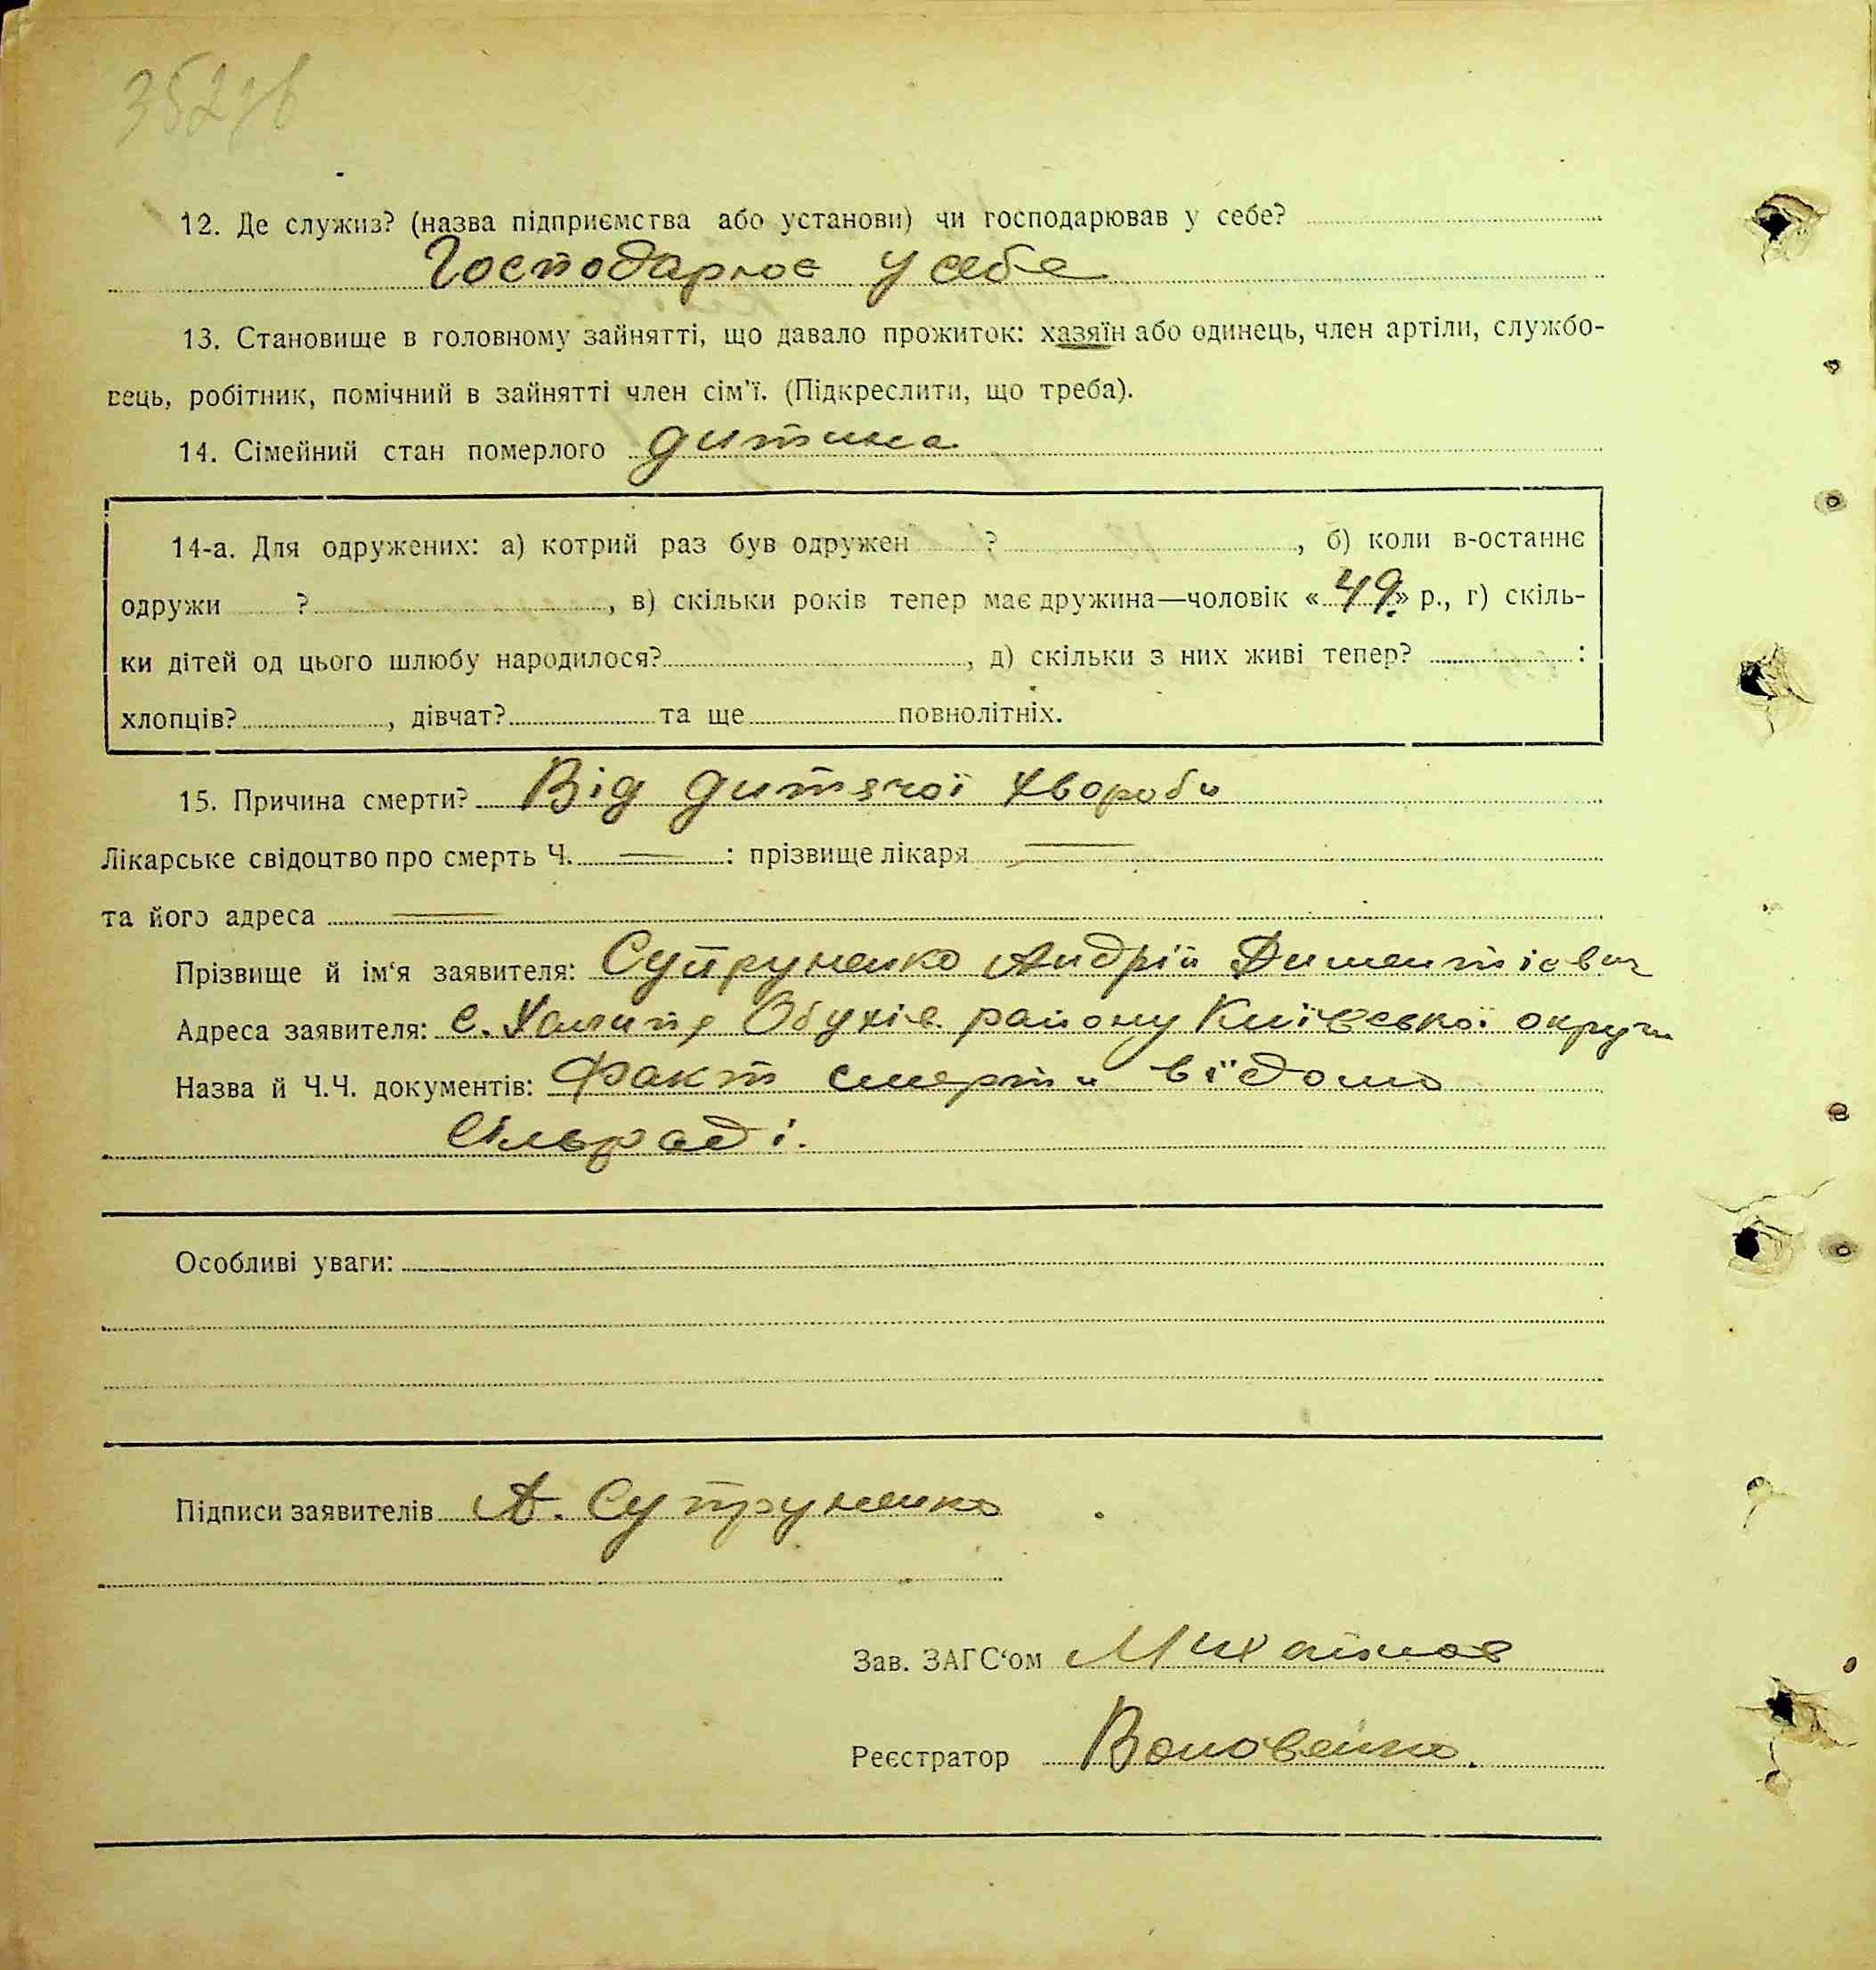 352зв
12. Де служив? (назва підприємства або установи) чи господарював у себе?
Господарює у себе
13. Становище в головному зайнятті, що давало прожиток: хазяїн або одинець, член артіли, службо-
вець, робітник, помічний в зайнятті член сім'ї. (Підкреслити, що треба).
14. Сімейний стан померлого дитина
14-а. Для одружених: а) котрий раз був одружен ?, б) коли в-останнє
одружи ?, в) скільки років тепер має дружина—чоловік «49» р., г) скіль-
ки дітей од цього шлюбу народилося?, д) скільки з них живі тепер? :
хлопців?, дівчат? та ще повнолітніх.
15. Причина смерти? Від дитячої хвороби
Лікарське свідоцтво про смерть Ч. — : прізвище лікаря —
та його адреса —
Прізвище й ім'я заявителя: Супруненко Андрій Диментієвич
Адреса заявителя: с. Халипя Обухів. району Київської округи
Назва й Ч.Ч. документів: Факт смерти відомо
Сільраді.
Особливі уваги:
Підписи заявителів А. Супруненко
Зав. ЗАГС'ом Михайлов
Реєстратор